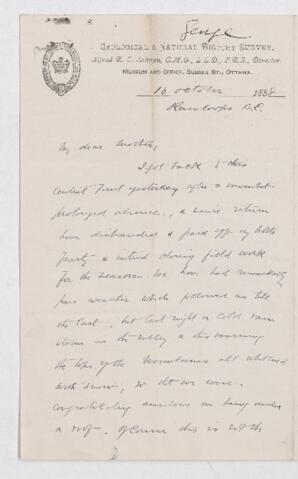 George
GEOLOGICAL & NATURAL HISTORY SURVEY.
Alfred R. C. Selwyn, C.M.G., L.L.D., F.R.S., Director.
MUSEUM AND OFFICE, SUSSEX ST., OTTAWA.
16 October 1888
Kamloops B.C.
My dear Mother,
I got back to this
yesterday after a somewhat
prolonged absence, & since return
have disbanded & paid off my little
party & intend closing field work
for the season. We have had
fine weather which followed us till
the last, but last night a cold rain
storm in the valley & this morning
the tops of the mountains all whitened
with snow, so that we were
congratulating ourselves on being under
a roof. Of course this is not the